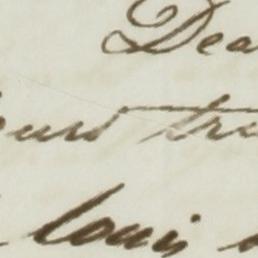 Dea
ours tru
Louis